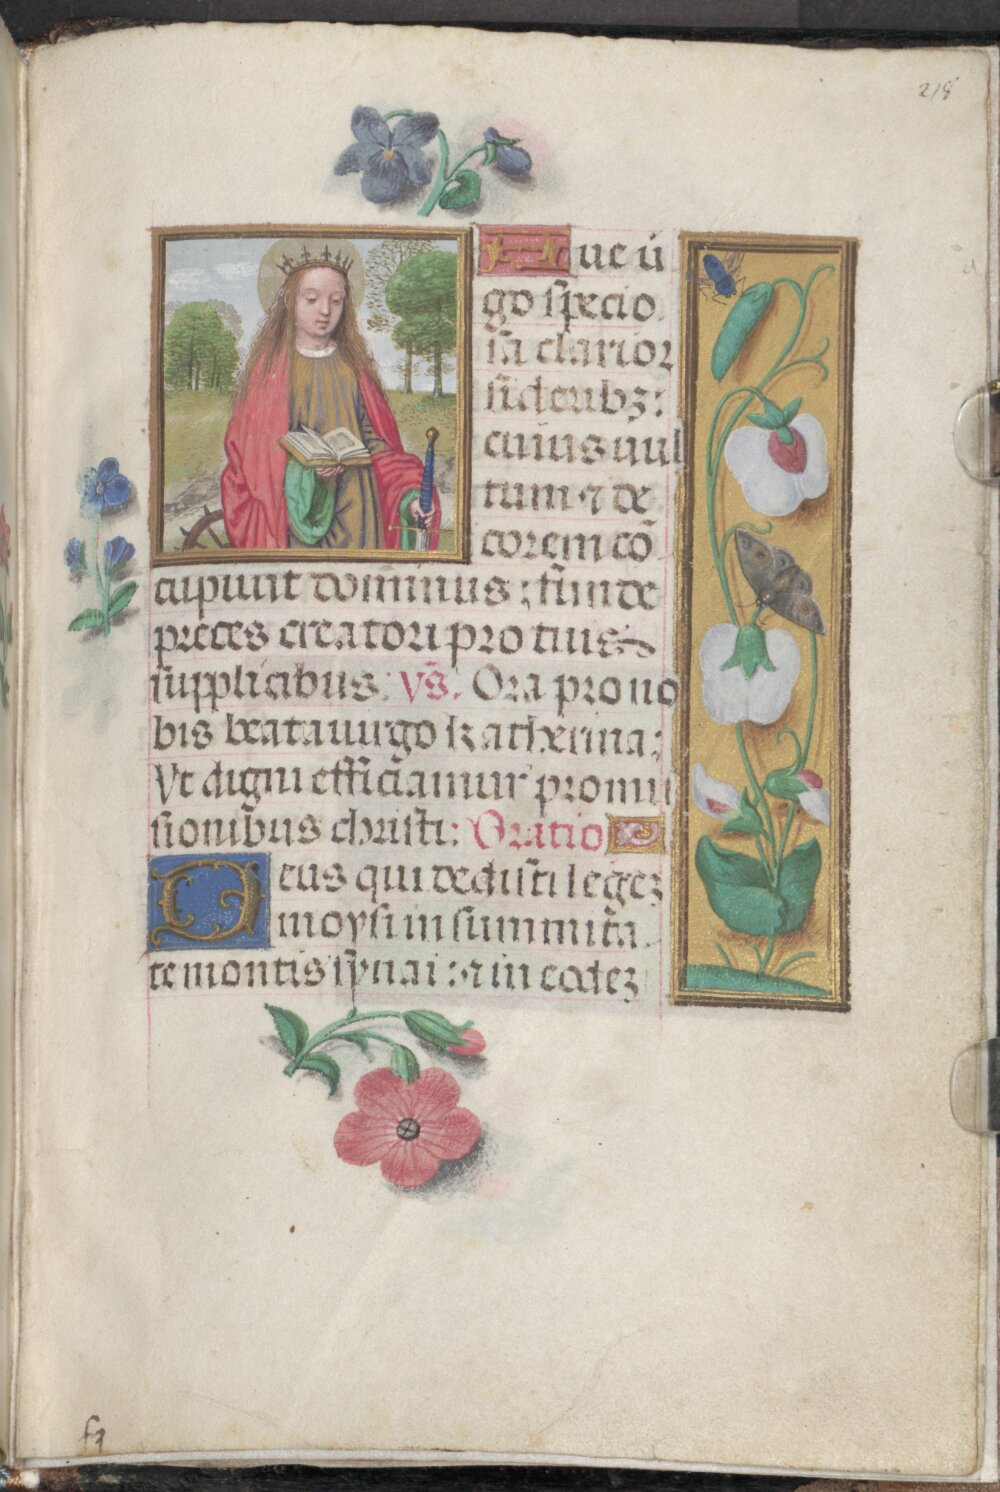 218
Aue ũ
go specio
sa clarior
sideribꝫ:
cuius uul
tum ⁊ de
corem cō
cupiuit dominus: funde
preces creatori pro tuis
supplicibus. vs̄. Ora pro no
bis beata uirgo katherina:
Vt digni efficiamur promis
sionibus christi: Oratio
Deus qui dedisti legeꝫ
moysi in summita
te montis synai: ⁊ in eodeꝫ